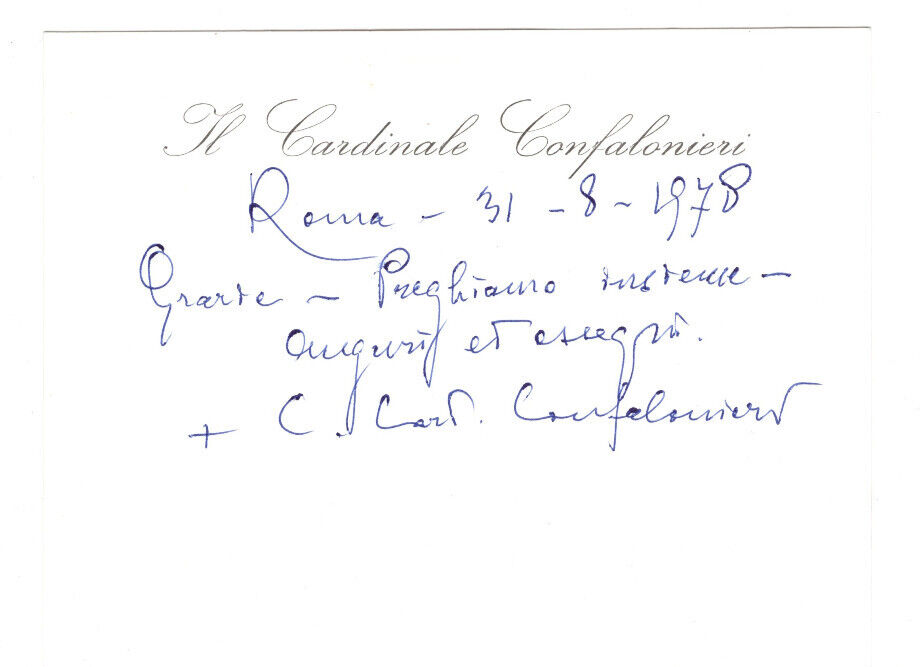 Il Cardinale Confalonieri
Roma - 31 - 8 - 1978
Grazie - Preghiamo insieme -
Auguri et ossequi.
+ C. Card. Confalonieri